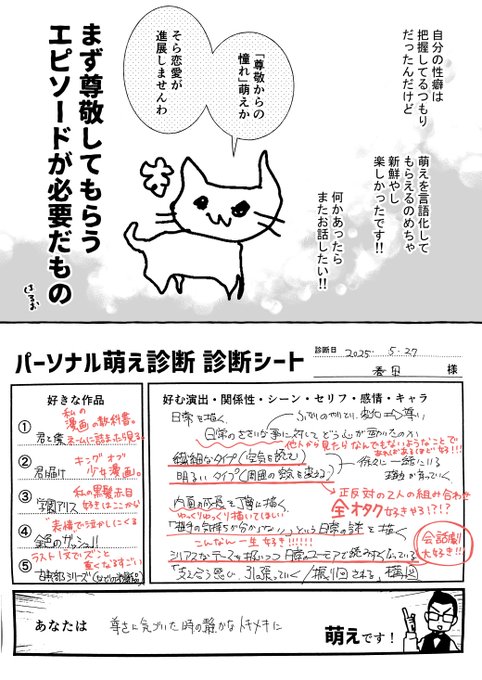 自分の性癖は
把握してるつもり
だったんだけど
萌えを言語化して
もらえるのめちゃ
新鮮やし
楽しかったです!!
何かあったら
またお話したい!!
「尊敬からの
憧れ」萌えか
そら恋愛が
進展しませんわ
まず尊敬してもらう
エピソードが必要だもの
はるお
パーソナル萌え診断 診断シート
診断日 2025. 5.27
様
好きな作品
私の
漫画の教科書。
① 君と僕
キング オブ
少女漫画。
② 君に届け
私の黒髪赤目
好きはここから
③ 学園アリス
表情で泣かしにくる
④ 金色のガッシュ!!
ラスト1文でズンと
重くなるすごい
⑤ 古典部シリーズ
好む演出・関係性・シーン・セリフ・感情・キャラ
日常を描く
日常のささいな事に対してどう心が動かたのか
他人から見たらなんでもないようなことで
あればあるほど好き!!!
繊細なタイプ(空気を読む)
明るいタイプ(周囲の空気を変える)
徐々に一緒にいる
正反対の2人の組み合わせ
全オタク好きやろ!?!?
内面の成長を丁寧に描く
ゆっくりゆっくり描いてほしい
「相手の気持ちが分からない」という日常の謎を描く
こんなん一生好き!!!!!!
会話劇
大好き!!
シリアスなテーマを扱いつつ日常のユーモアで読みやすくなっている
「支え合う思い、引っ張っていく/振り回される」構図
あなたは 尊さに気づいた時の静かなトキメキに 萌えです!